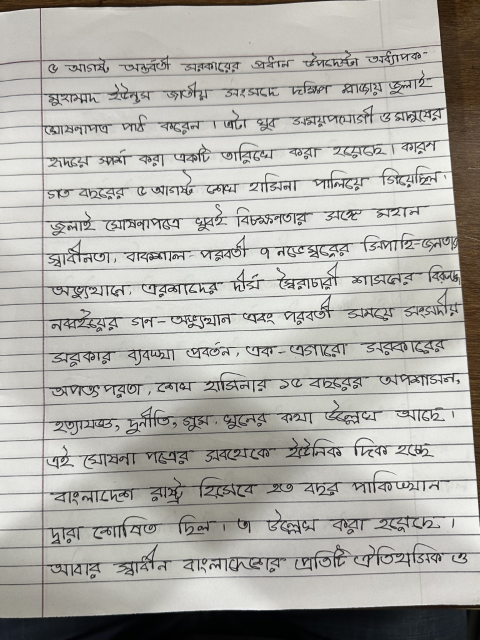 ৫ আগস্ট অন্তর্বর্তী সরকারের প্রধান উপদেষ্টা অধ্যাপক
মুহাম্মদ ইউনুস জাতীয় সংসদে দক্ষিণ প্লাজায় জুলাই
ঘোষনাপত্র পাঠ করেন। এটা খুব সময়পযোগী ও মানুষের
হৃদয়ে স্পর্শ করা একটি তারিখে করা হয়েছে। কারণ
গত বছরের ৫ আগস্ট শেখ হাসিনা পালিয়ে গিয়েছিল।
জুলাই ঘোষনাপত্রে খুবই বিচক্ষণতার সঙ্গে মহান
স্বাধীনতা, বাকশাল-পরবর্তী ৭ নভেম্বরের সিপাহি-জনতার
অভ্যুত্থানে, এরশাদের দীর্ঘ স্বৈরাচারী শাসনের বিরুদ্ধে
নব্বইয়ের গন-অভ্যুত্থান এবং পরবর্তী সময়ে সংসদীয়
সরকার ব্যবস্থা প্রবর্তন, এক-এগারো সরকারের
অপতৎপরতা, শেখ হাসিনার ১৫ বছরের অপশাসন,
হত্যাযজ্ঞ, দুর্নীতি, গুম, খুনের কথা উল্লেখ আছে।
এই ঘোষনা পত্রের সবথেকে ইউনিক দিক হচ্ছে
বাংলাদেশ রাষ্ট্র হিসেবে ২৩ বছর পাকিস্থান
দ্বারা শোষিত ছিল। তা উল্লেখ করা হয়েছে।
আবার স্বাধীন বাংলাদেশের প্রতিটি ঐতিহাসিক ও